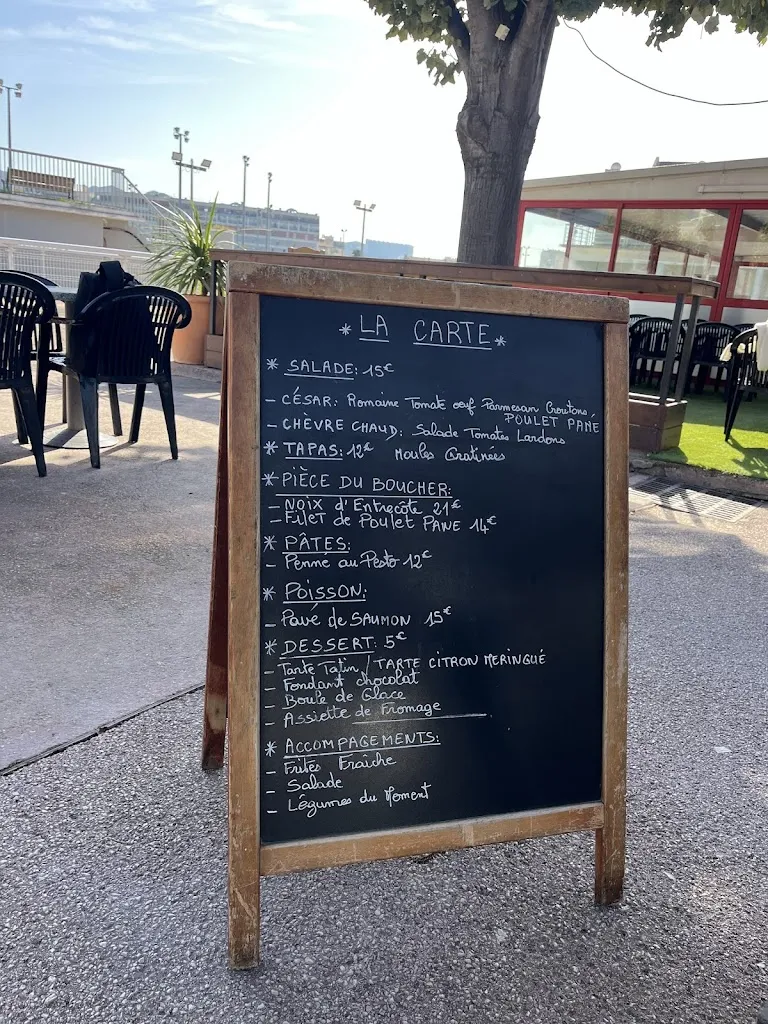 * LA CARTE *
* SALADE: 15€
- CÉSAR: Romaine Tomate oeuf Parmesan Croutons,
POULET PANE
- CHÈVRE CHAUD: Salade Tomates Lardons
* TAPAS: 12€ Moules Gratinées
* PIÈCE DU BOUCHER:
- NOIX d'Entrecôte 21€
- FILET de Poulet PANE 14€
* PÂTES:
- Penne au Pesto 12€
* POISSON:
- Pavé de SAUMON 15€
* DESSERT: 5€
- Tarte Tatin / TARTE CITRON MERINGUÉ
- Fondant chocolat
- Boule de Glace
- Assiette de Fromage
* ACCOMPAGEMENTS:
- Frites Fraîche
- Salade
- Légumes du Moment